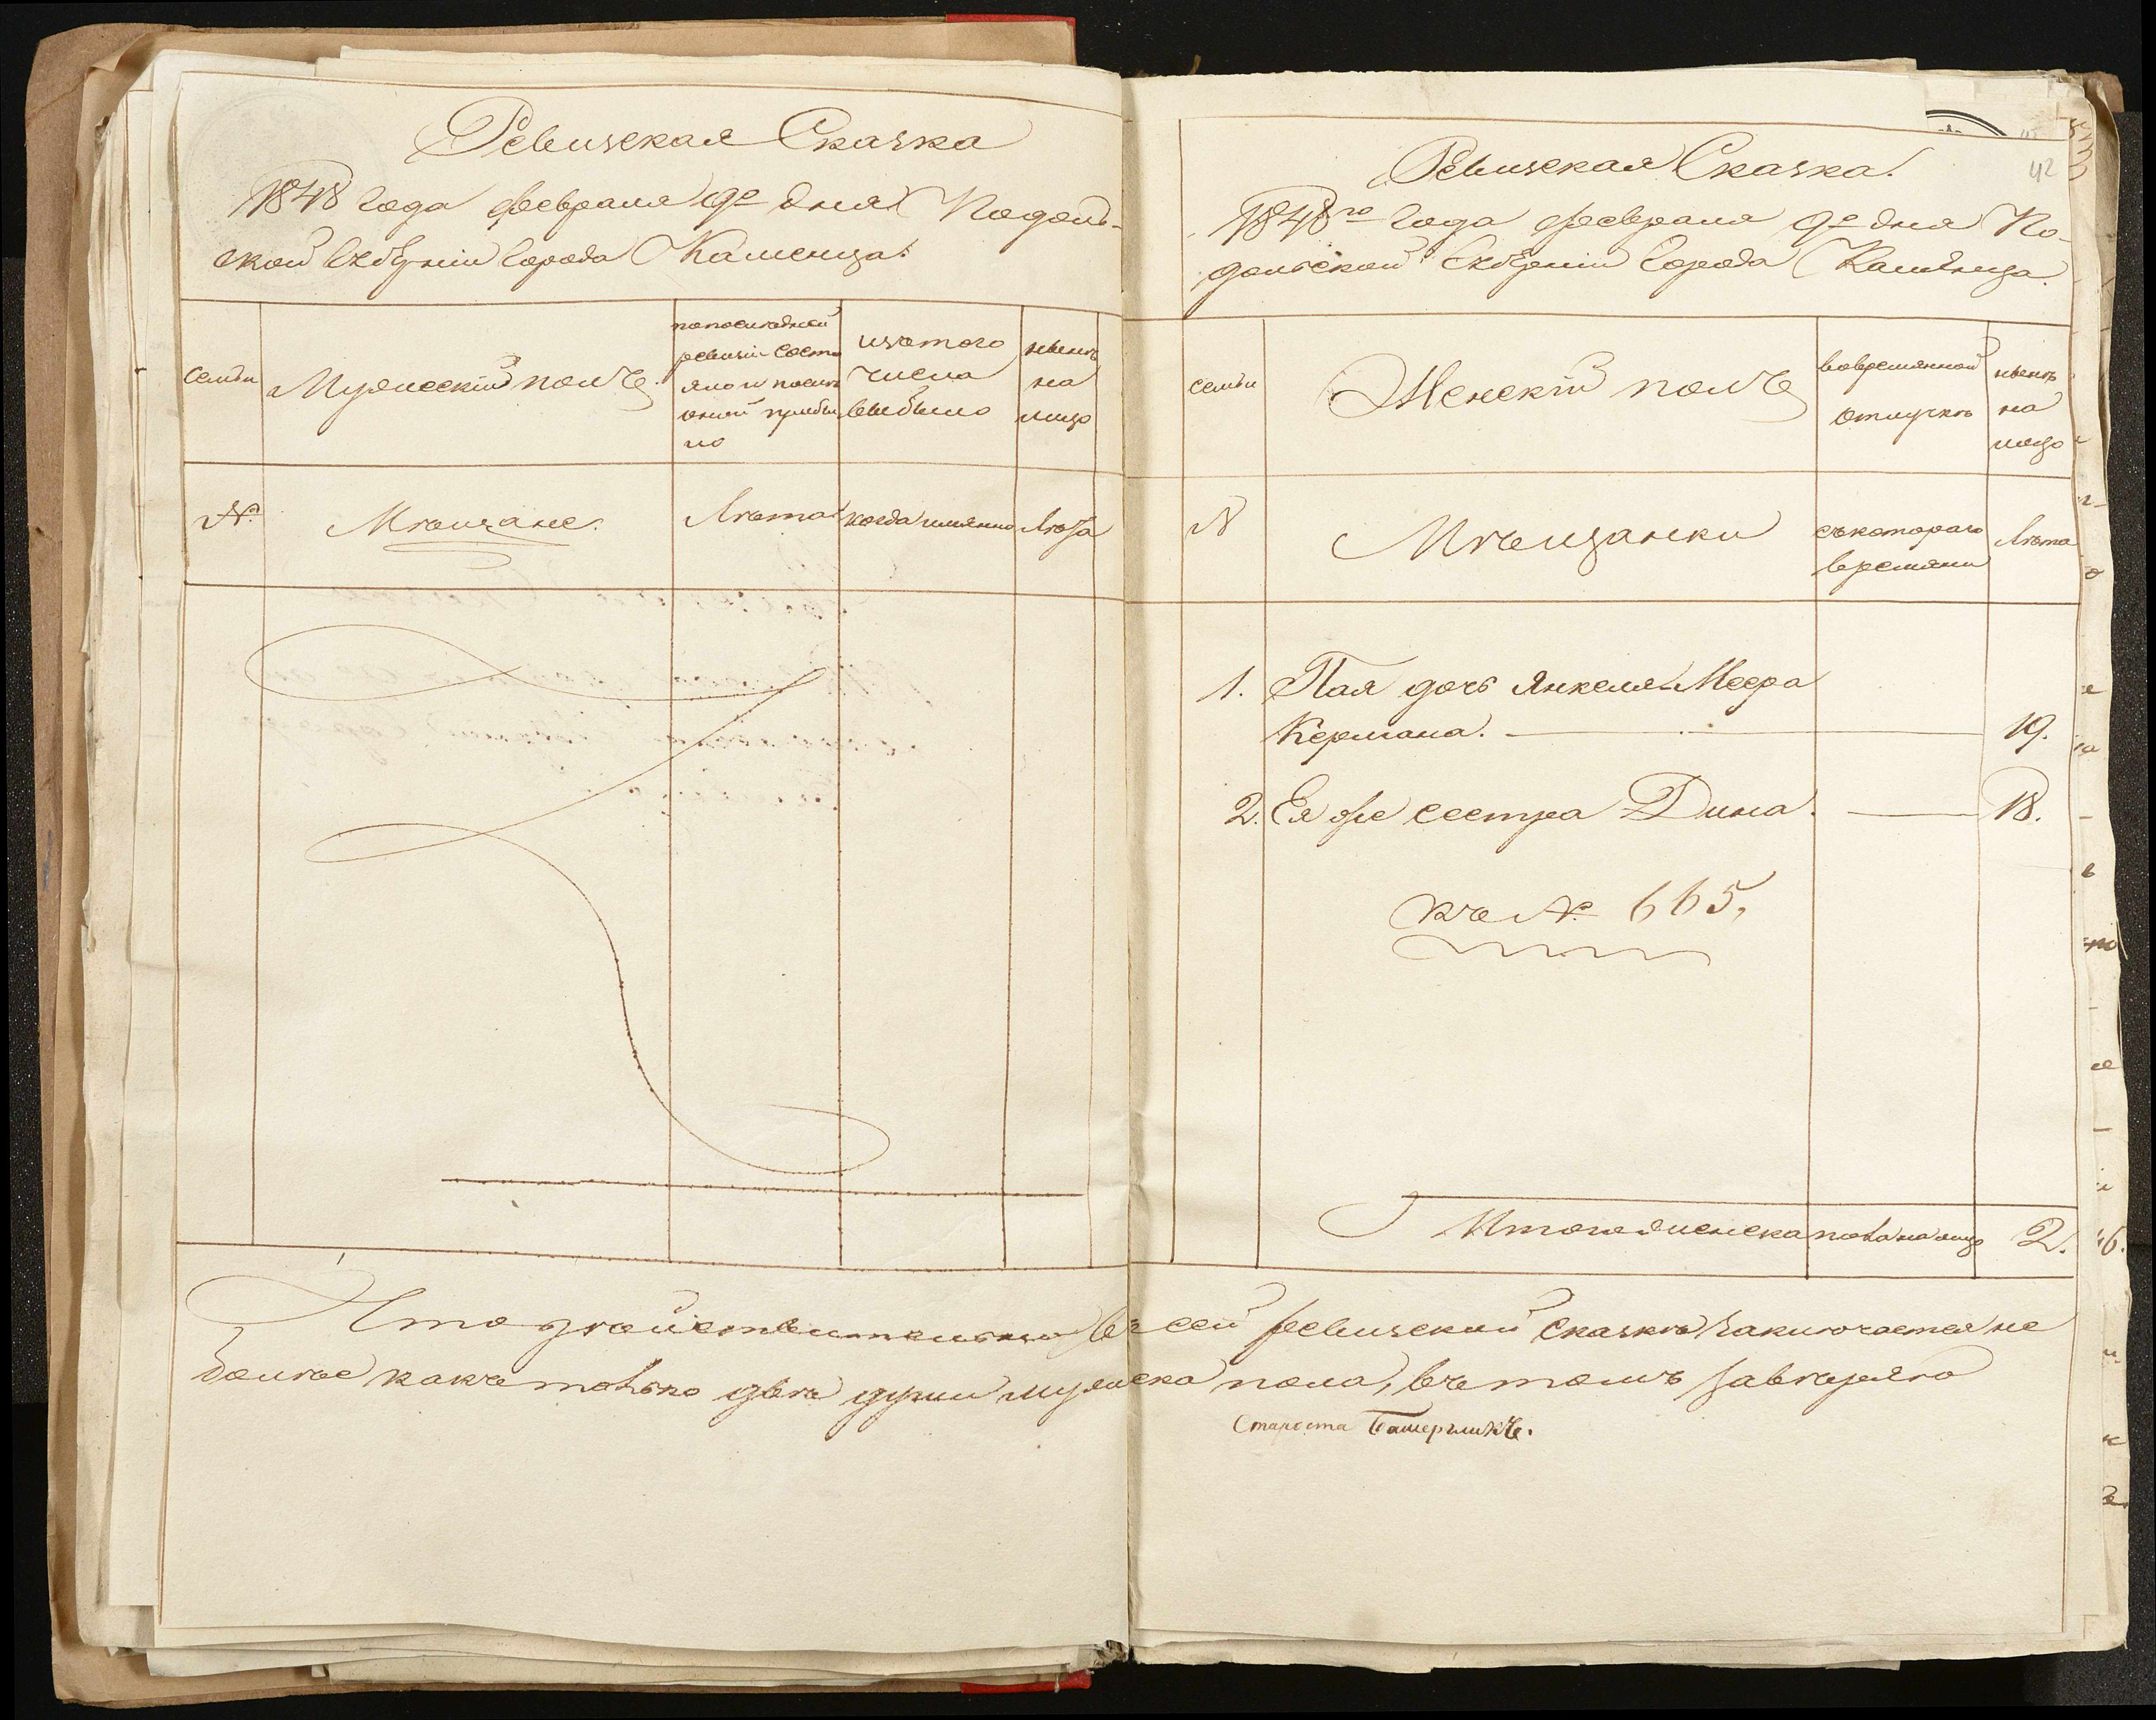 Ревизская Сказка
1848 года февраля 9е дня Подоль-
ской Губерніи города Каменца.
семьи
Мужескій полъ.
по последней
ревизіи состо
яло и после
оной прибы
ло
изъ того
числа
выбыло
ныне
на
лицо
№
Мѣщане.
Лѣта
когда имянно
Лѣта
42
Ревизская Сказка.
1848го года февраля 9е дня По-
дольской Губерніи города Каменца.
семьи
Женскій полъ
во временной
отлучкѣ
нынѣ
на
лицо
№
Мѣщанки
съ котораго
времяни
Лѣта
1. Пая дочь Янкеля Меера
Кермана. 19.
2. Ея же сестра Дина. 18.
къ № 665.
Итого женска пола на лицо 2.
Что действительно въ сей ревизской сказкѣ заключается не
болѣе какъ только двѣ души мужеска пола, въ томъ завѣряю
Староста